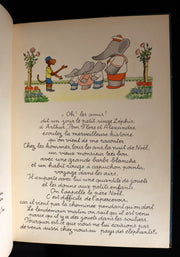 "Oh! les amis!"
dit un jour le petit singe Zéphir
à Arthur, Pom, Flore et Alexandre
écoutez la merveilleuse histoire
qu'on vient de me raconter
Chez les hommes, tous les ans, la nuit de Noël,
un vieux monsieur très bon,
avec une grande barbe blanche
et un habit rouge à capuchon pointu,
voyage dans les airs.
Il emporte avec lui quantité de jouets
et les donne aux petits enfants.
On l'appelle le père Noël.
C'est difficile de l'apercevoir,
car il vient par la cheminée pendant qu'on dort.
Le lendemain matin on sait qu'il est venu
parce qu'on trouve des jouets dans ses souliers.
Pourquoi est-ce que nous ne lui écrirons pas
de venir aussi chez nous au pays des éléphants?